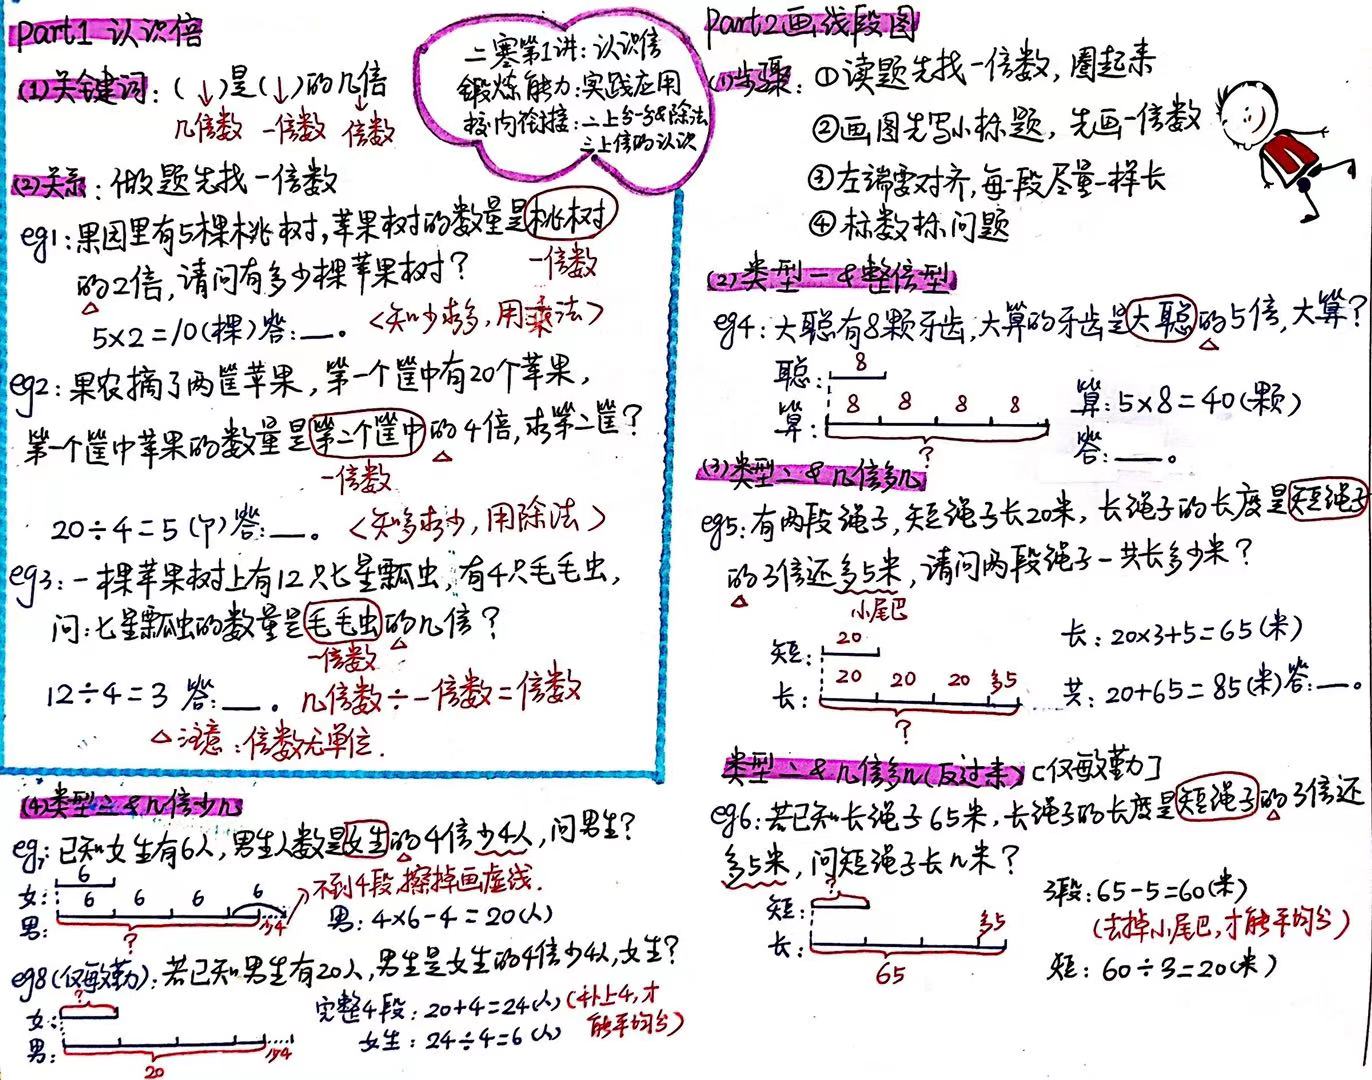 Part1 认识倍
(1)关键词：(↓)是(↓)的几倍
几倍数 一倍数 倍数
二寒第1讲：认识倍
锻炼能力：实践应用
校内衔接：二上分一分&除法
三上倍的认识
(2)关系：做题先找一倍数
eg1：果园里有5棵桃树，苹果树的数量是桃树
一倍数
的2倍，请问有多少棵苹果树？
5×2=10(棵)答：__。<知少求多，用乘法>
eg2：果农摘了两筐苹果，第一个筐中有20个苹果，
第一个筐中苹果的数量是第二个筐中的4倍，求第二筐？
一倍数
20÷4=5(个)答：__。<知多求少，用除法>
eg3：一棵苹果树上有12只七星瓢虫，有4只毛毛虫，
问：七星瓢虫的数量是毛毛虫的几倍？
一倍数
12÷4=3 答：__。几倍数÷一倍数=倍数
△注意：倍数无单位.
(4)类型三&几倍少几
eg7：已知女生有6人，男生人数是女生的4倍少4人，问男生？
6
女：
6 6 6 6
不到4段，擦掉画虚线.
男：
少4
?
男：4×6-4=20(人)
eg8(仅敏勤)：若已知男生有20人，男生是女生的4倍少4人，女生？
?
女：
男：
少4
20
完整4段：20+4=24(人)(补上4，才
能平均分)
女生：24÷4=6(人)
Part2画线段图
(1)步骤：①读题先找一倍数，圈起来
②画图先写小标题，先画一倍数
③左端要对齐，每一段尽量一样长
④标数标问题
(2)类型一&整倍型
eg4：大聪有8颗牙齿，大算的牙齿是大聪的5倍，大算？
聪：
8
算：
8 8 8 8
?
算：5×8=40(颗)
答：__。
(3)类型二&几倍多几
eg5：有两段绳子，短绳子长20米，长绳子的长度是短绳子
的3倍还多5米，请问两段绳子一共长多少米？
小尾巴
短：
20
长：
20 20 20 多5
?
长：20×3+5=65(米)
共：20+65=85(米)答：__。
类型二&几倍多几(反过来)[仅敏勤]
eg6：若已知长绳子65米，长绳子的长度是短绳子的3倍还
多5米，问短绳子长几米？
?
短：
长：
多5
65
3段：65-5=60(米)
(去掉小尾巴，才能平均分)
短：60÷3=20(米)